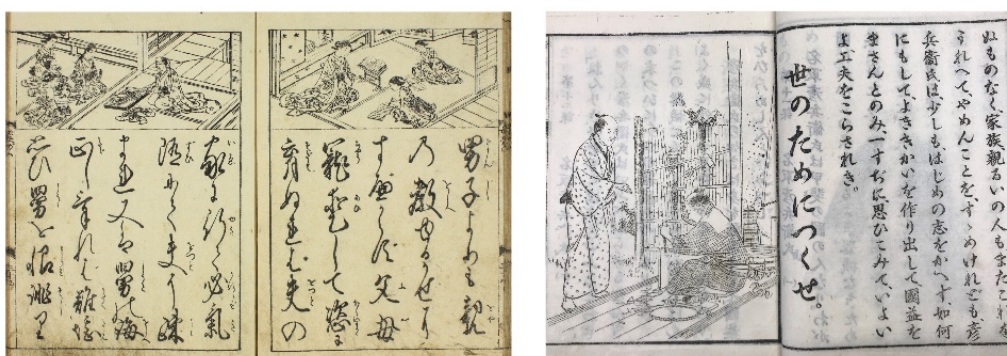 男子よりも親
乃教ゆるかせに
すへからす父母
寵愛して恣に
育ぬれは夫の
家に行て必氣
随にて夫に疎
まれ又は舅の誨
正しけれは難堪
思ひ舅を恨誹り
ぬものなく家族親るいの人もまた
うれへて、やめんことを、すゝめけれども、彦
兵衞氏は少しも、はじめの志をかへず、如何
にもしてよききかいを作り出して、國益を
まさんとのみ、一すぢに思ひこみて、いよい
よ工夫をこらされき。
世のためにつくせ。